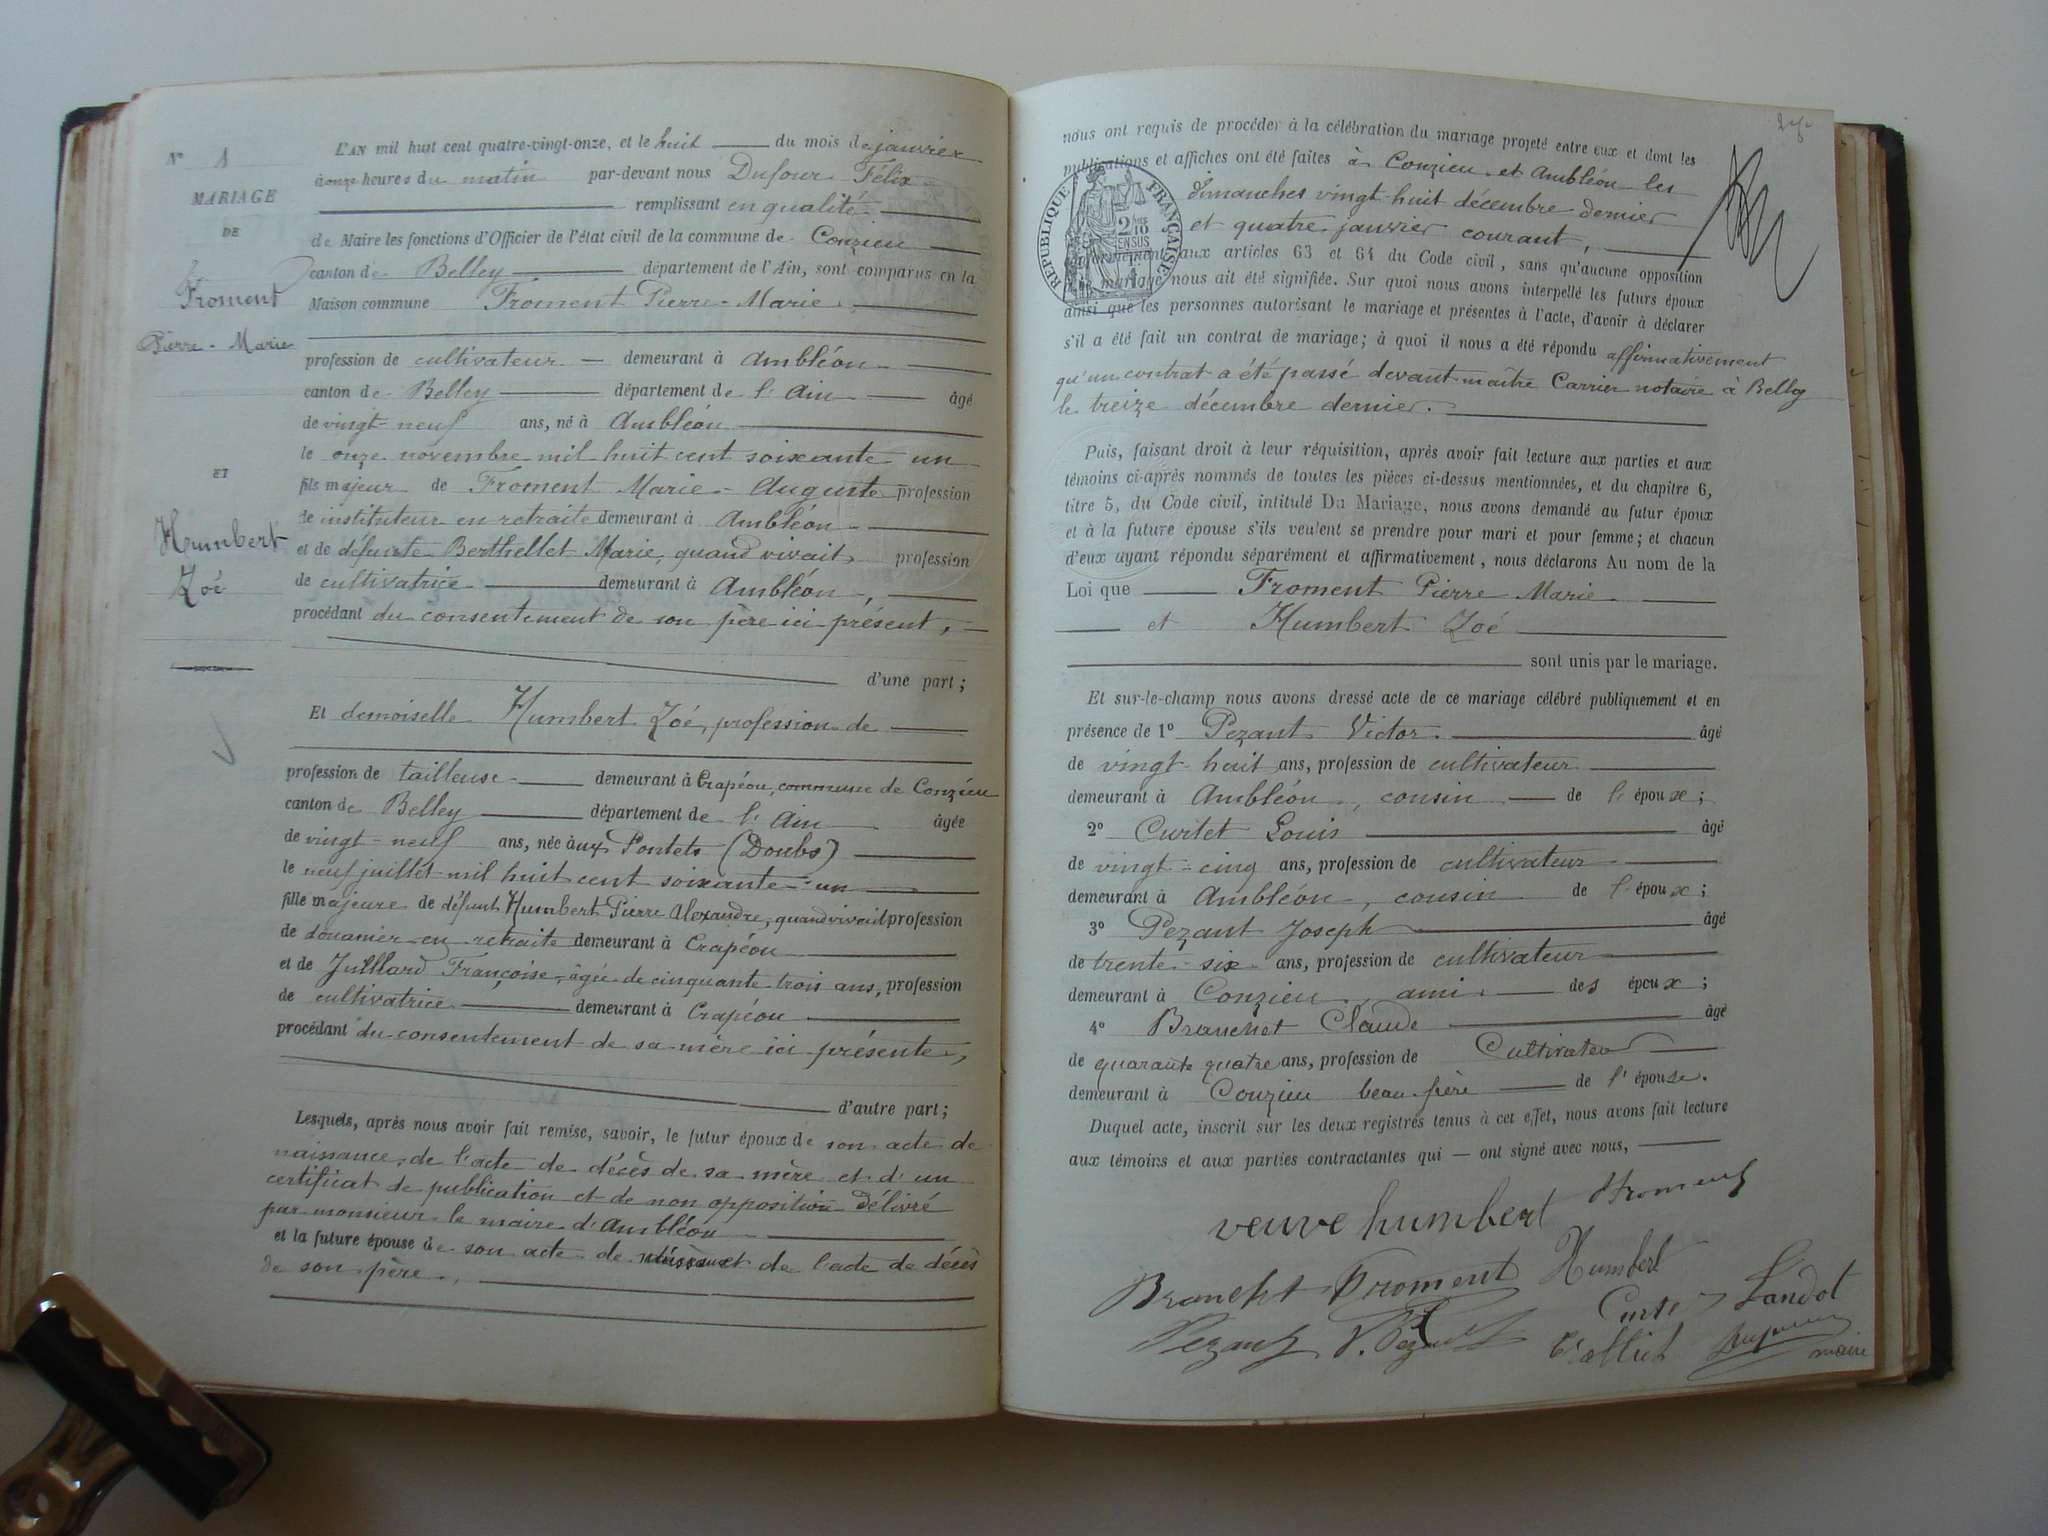 N° 1
MARIAGE
DE
Froment
Pierre-Marie
ET
Humbert
Zoé
L'AN mil huit cent quatre-vingt-onze, et le huit du mois de janvier
à onze heures du matin par-devant nous Dufour Félix
remplissant en qualité
de Maire les fonctions d'Officier de l'état civil de la commune de Conzieu
canton de Belley département de l'Ain, sont comparus en la
Maison commune Froment Pierre-Marie
profession de cultivateur demeurant à Ambléon
canton de Belley département de l'Ain âgé
de vingt-neuf ans, né à Ambléon
le onze novembre mil huit cent soixante un
fils majeur de Froment Marie-Auguste profession
de instituteur en retraite demeurant à Ambléon
et de défunte Berthellet Marie, quand vivait profession
de cultivatrice demeurant à Ambléon,
procédant du consentement de son père ici présent,
d'une part;
Et demoiselle Humbert Zoé, profession de
profession de tailleuse demeurant à Crapéou, commune de Conzieu
canton de Belley département de l'Ain âgée
de vingt-neuf ans, née aux Pontets (Doubs)
le neuf juillet mil huit cent soixante-un
fille majeure de défunt Humbert Pierre Alexandre, quand vivait profession
de douanier en retraite demeurant à Crapéou
et de Juillard Françoise, âgée de cinquante trois ans, profession
de cultivatrice demeurant à Crapéou
procédant du consentement de sa mère ici présente,
d'autre part;
Lesquels, après nous avoir fait remise, savoir, le futur époux de son acte de
naissance, de l'acte de décès de sa mère et d'un
certificat de publication et de non opposition délivré
par monsieur le maire d'Ambléon
et la future épouse de son acte de naissance et de l'acte de décès
de son père,
nous ont requis de procéder à la célébration du mariage projeté entre eux et dont les
publications et affiches ont été faites à Conzieu et Ambléon les
dimanches vingt-huit décembre dernier
et quatre janvier courant,
RÉPUBLIQUE FRANÇAISE
2/10 EN SUS
conformément aux articles 63 et 64 du Code civil, sans qu'aucune opposition
mariage nous ait été signifiée. Sur quoi nous avons interpellé les futurs époux
ainsi que les personnes autorisant le mariage et présentes à l'acte, d'avoir à déclarer
s'il a été fait un contrat de mariage; à quoi il nous a été répondu affirmativement
qu'un contrat a été passé devant maître Carrier notaire à Belley
le treize décembre dernier.
Puis, faisant droit à leur réquisition, après avoir fait lecture aux parties et aux
témoins ci-après nommés de toutes les pièces ci-dessus mentionnées, et du chapitre 6,
titre 5, du Code civil, intitulé Du Mariage, nous avons demandé au futur époux
et à la future épouse s'ils veulent se prendre pour mari et pour femme; et chacun
d'eux ayant répondu séparément et affirmativement, nous déclarons Au nom de la
Loi que Froment Pierre Marie
et Humbert Zoé
sont unis par le mariage.
Et sur-le-champ nous avons dressé acte de ce mariage célébré publiquement et en
présence de 1° Pezant Victor âgé
de vingt-huit ans, profession de cultivateur
demeurant à Ambléon, cousin de l'époux;
2° Curtet Louis âgé
de vingt-cinq ans, profession de cultivateur
demeurant à Ambléon, cousin de l'époux;
3° Pezant Joseph âgé
de trente-six ans, profession de cultivateur
demeurant à Conzieu, ami des époux;
4° Branchet Claude âgé
de quarante quatre ans, profession de Cultivateur
demeurant à Conzieu beau-père de l'épouse.
Duquel acte, inscrit sur les deux registres tenus à cet effet, nous avons fait lecture
aux témoins et aux parties contractantes qui — ont signé avec nous,
veuve humbert Froment
Froment Humbert
Landot
Pezant V. Pezant
maire